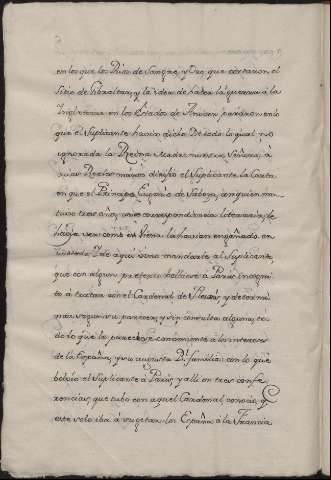 en los que los Rios de Sangre, y Oro, que costaron el
sitio de Gibraltar, y la idea de haber la guerra á la
Inglaterra en los Estados de America, fundaron en lo
que el Suplicante havia dicho. De todo lo qual, no
ignorada la Reyna Madre nuestra Señora, á
cuias Reales manos dirijio el Suplicante la Carta
en que el Principe Eugenio de Saboya, con quien man-
tuvo tres años, una correspondencia literaria, le
hacia ver como en Viena la havian engañado en
De aqui vino mandarle al Suplicante,
que con algun pretexto bolviese á Paris incogni-
to á tratar con el Cardenal de Fleury, y determi-
nar segun su parecer, y sin consulta alguna, to-
do lo que le pareciese combeniente á los intereses
de la España, y su augusta Rl. familia: con lo que
bolvió el Suplicante á Paris, y alli en tres confe-
rencias, que tubo con aquel Cardenal, conoció, q
este solo iba á sugetar la España á la Francia